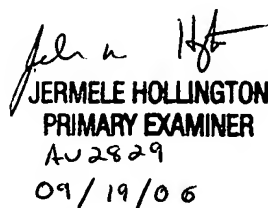 JERMELE HOLLINGTON
PRIMARY EXAMINER
AU 2829
09/19/06